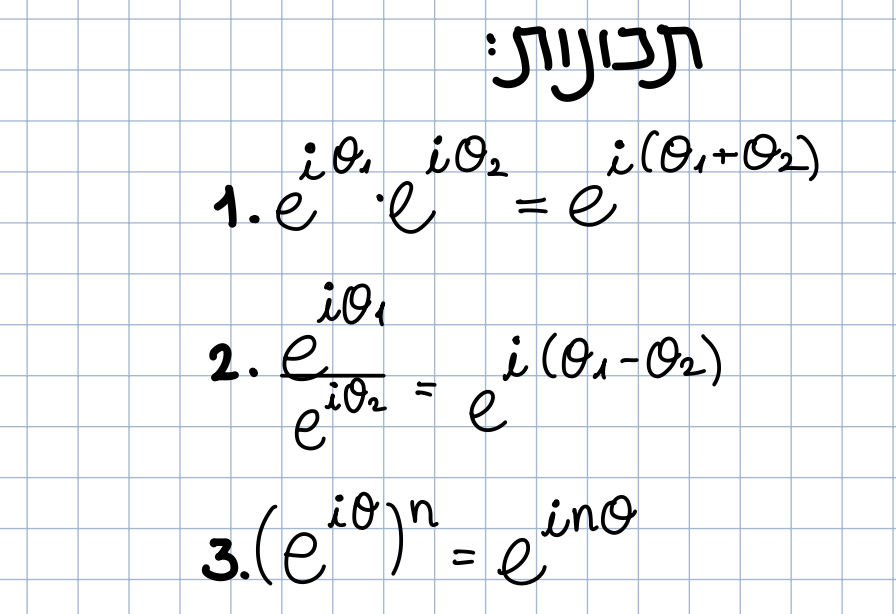 תכונות:
1. e^{iθ₁} · e^{iθ₂} = e^{i(θ₁+θ₂)}
2. \frac{e^{iθ₁}}{e^{iθ₂}} = e^{i(θ₁-θ₂)}
3. (e^{iθ})^n = e^{inθ}